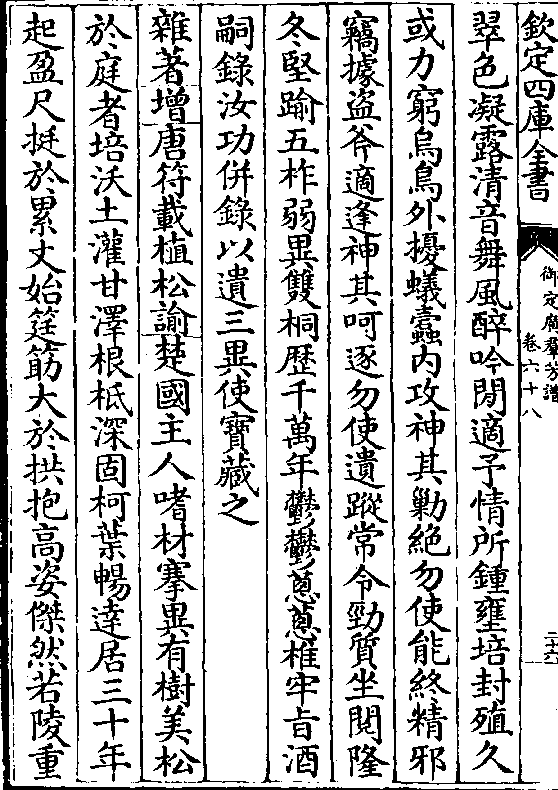 欽定四庫全書
御定廣羣芳譜
卷六十八
二十六
翠色凝露清音舞風醉吟閒適予情所鍾壅培封殖久
或力窮烏鳥外擾蟻蠹内攻神其勦絶勿使能終精邪
竊據盜斧適逢神其呵逐勿使遺蹤常令勁質坐閲隆
冬堅踰五柞弱異雙桐歴千萬年鬱鬱蔥蔥椎牢旨酒
嗣錄汝功併錄以遺三異使寶藏之
雜著增唐符載植松諭楚國主人嗜材搴異有樹美松
於庭者培沃土灌甘澤根柢深固柯葉暢達居三十年
起盈尺挺於累丈始筳筯大於拱抱高姿傑然若陵重